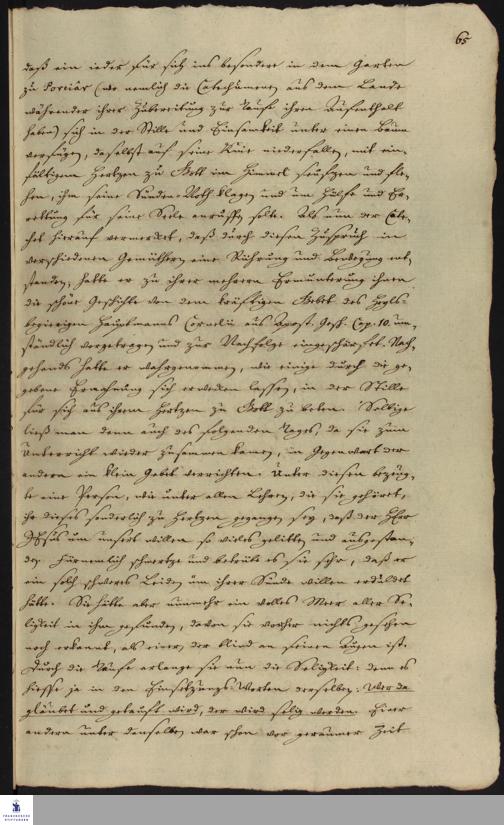 65
daß ein ieder für sich ins besondere in dem Garten
zu Poreiâr (wo nemlich die Catechumeni aus dem Lande
währender ihrer Zubereitung zur Taufe ihren Aufenthalt
haben) sich in der Stille und Einsamkeit unter einen Baum
verfügen, daselbst auf seine Knie niederfallen, mit ein-
fältigem Hertzen zu Gott im Himmel seufzen und fle-
hen, ihm seine Sünden-Noth klagen und um Hülfe und Er-
rettung für seine Seele anruffen solte. Als nun der Cate-
chet hierauf vermercket, daß durch diesen Zuspruch in
verschiedenen Gemüthern eine Rührung und Bewegung ent-
standen, hatte er zu ihrer mehrern Ermunterung ihnen
die schöne Geschichte von dem kräftigen Gebet des Heyls-
begierigen Hauptmanns Cornelii aus Apost. Gesch. Cap. 10. um-
ständlich vorgetragen und zur Nachfolge eingeschärfet. Nach-
gehends hatte er wahrgenommen, wie einige durch die ge-
gebene Ermahnung sich erwecken lassen, in der Stille
für sich aus ihrem Hertzen zu Gott zu beten. Selbige
ließ man denn auch des folgenden Tages, da sie zum
Unterricht wieder zusammen kamen, in Gegenwart der
andern ein klein Gebet verrichten. Unter diesen bezeug-
te eine Person, wie unter allen Lehren, die sie gehöret,
ihr dieses sonderlich zu Hertzen gegangen sey, daß der HErr
JEsus um unsert willen so vieles gelitten und ausgestan-
den. Fürnemlich schmertze und betrübe es sie sehr, daß er
ein solch schweres Leiden um ihrer Sünde willen erduldet
hätte. Sie hätte aber nunmehr ein volles Meer aller Se-
ligkeit in ihm gefunden, davon sie vorher nichts gesehen
noch erkannt, als einer, der blind an seinen Augen ist.
Durch die Taufe erlange sie nun die Seligkeit: denn es
hiesse ja in den Einsetzungs-Worten derselben: Wer da
gläubet und getauft wird, der wird selig werden. Einer
andern unter denselben war schon vor geraumer Zeit
FRANCKESCHE
STIFTUNGEN